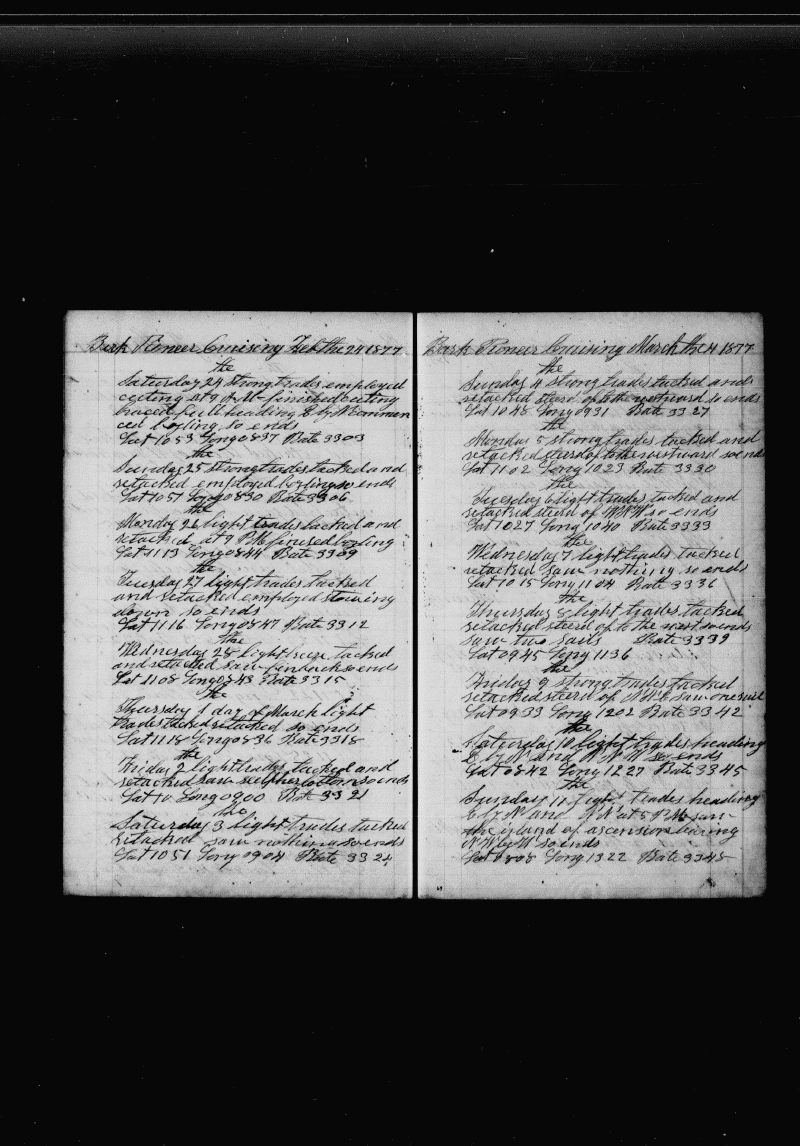 Bark Pioneer Cruiseny Feb the 24 1877
the
Saturday 24 strong trades employed
cutting at 9 A M finished cutting
braced full heading E by N Commen
ced boyling so ends
Lat 1053 Long 0837 Rate 3303
the
Sunday 25 strong trades tacked and
retacked employed boyling so ends
Lat 1057 Long 0830 Rate 3306
the
Monday 26 light trades tacked and
retacked at 9 P M finised boyling
Lat 1113 Long 0844 Rate 3309
the
Tuesday 27 light trades tacked
and retacked employed stowing
down so ends
Lat 1116 Long 0847 Rate 3312
the
Wednesday 28 light breeze tacked
and retacked saw finback so ends
Lat 1108 Long 0843 Rate 3315
the
Thursday 1 day of March light
trades tacked retacked so ends
Lat 1118 Long 0836 Rate 3318
the
Friday 2 light trades tacked and
retacked saw sulpher bottom so ends
Lat 10 Long 0900 Rate 3321
the
Saturday 3 light trades tacked
retacked saw nothing so ends
Lat 1051 Long 0904 Rate 3324
Bark Pioneer Cruising March the 4 1877
the
Sunday 4 strong trades tacked and
retacked steerd of to the westward so ends
Lat 1048 Long 0931 Rate 3327
the
Monday 5 strong trades tacked and
retacked sterd of to the westward so ends
Lat 1102 Long 1023 Rate 3330
the
Tuesday 6 light trades tacked and
retacked steerd of W N W so ends
Lat 1027 Long 1040 Rate 3333
the
Wednesday 7 light trades tacked
retacked saw nothing so ends
Lat 1015 Long 1104 Rate 3336
the
Thursday 8 light trades tacked
retacked steerd of to the west so ends
saw two sails Rate 3339
Lat 0945 Long 1136
the
Friday 9 strong trades tacked
retacked steerd of saw one sail
Lat 0933 Long 1202 Rate 3342
the
Saturday 10 light trades heading
E by N and N N W so ends
Lat 0842 Long 1227 Rate 3345
the
Sunday 11 light trades heading
E by N and N at 5 P M saw
the island of ascension bearing
N W by W so ends
Lat 0808 Long 1322 Rate 3348